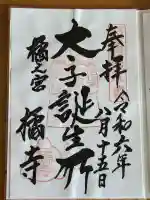 奉拝
令和六年
八月十五日
太子誕生所
橘之宮
橘寺